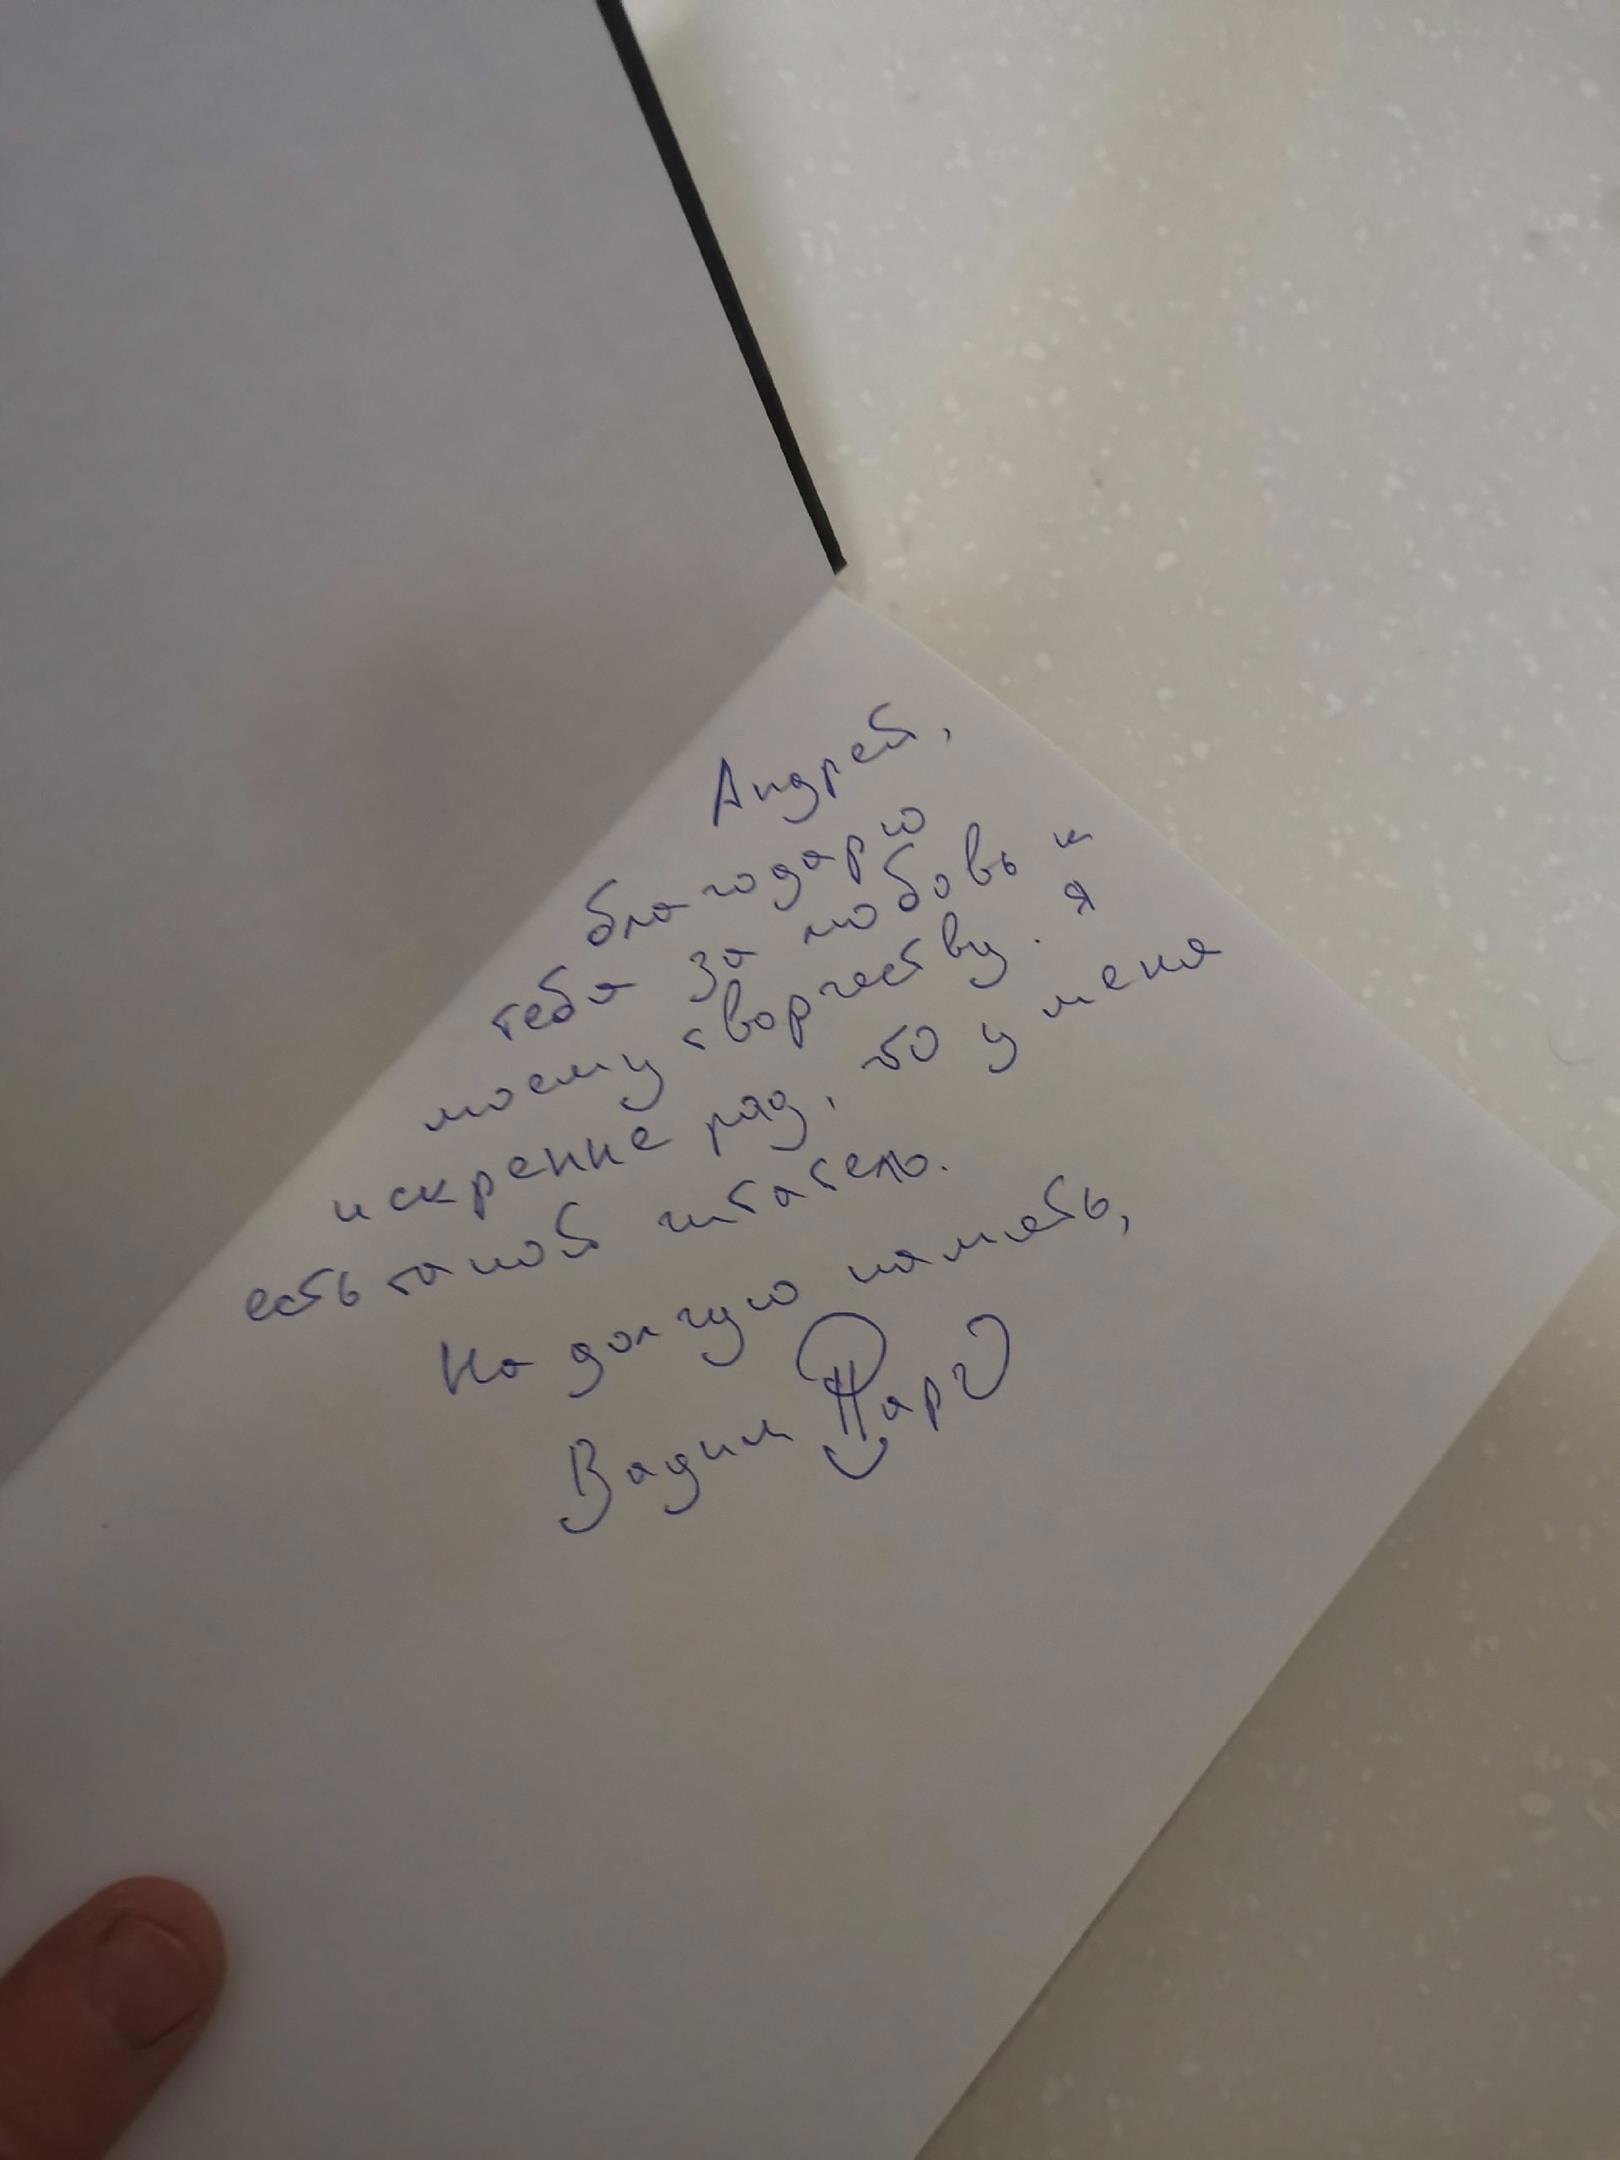 Андрей,
благодарю
тебя за любовь к
моему творчеству. Я
искренне рад, что у меня
есть такой читатель.
На долгую память,
Вадим